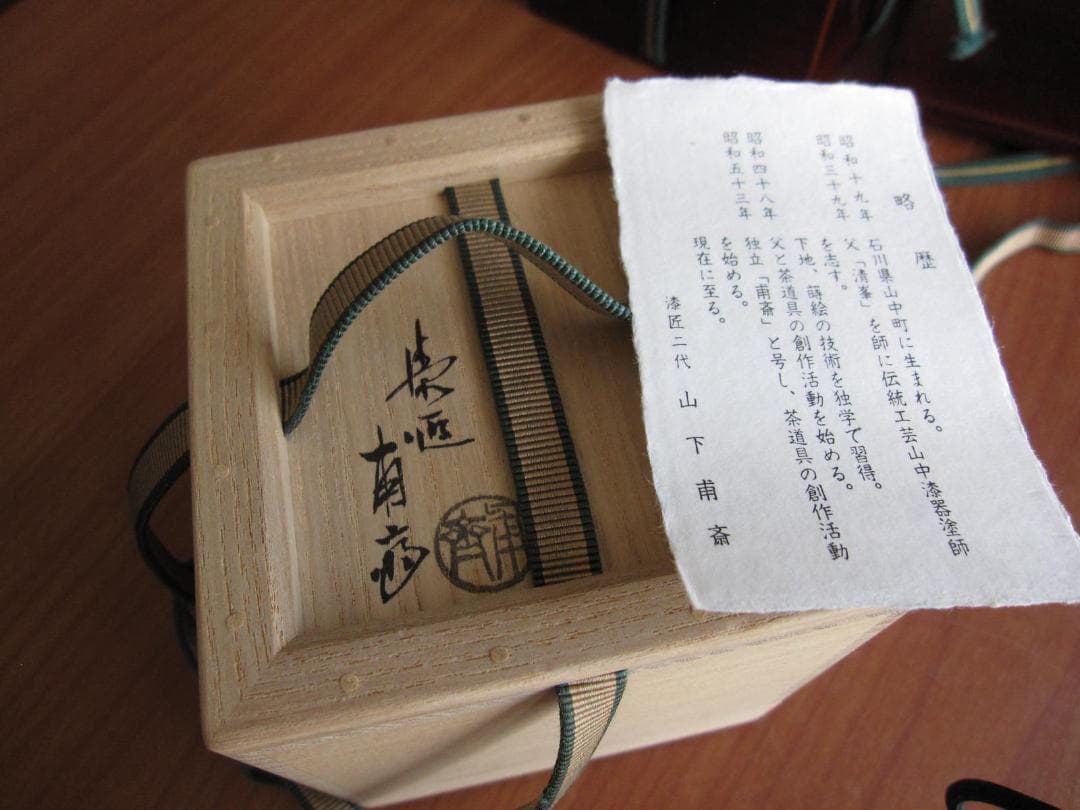 略歴
昭和十九年 石川県山中町に生まれる。
昭和三十九年 父「清峯」を師に伝統工芸山中漆器塗師
を志す。
下地、蒔絵の技術を独学で習得。
昭和四十八年 父と茶道具の創作活動を始める。
昭和五十三年 独立「甫斎」と号し、茶道具の創作活動
を始める。
現在に至る。
漆匠二代 山下甫斎
漆匠
甫斎
甫斎